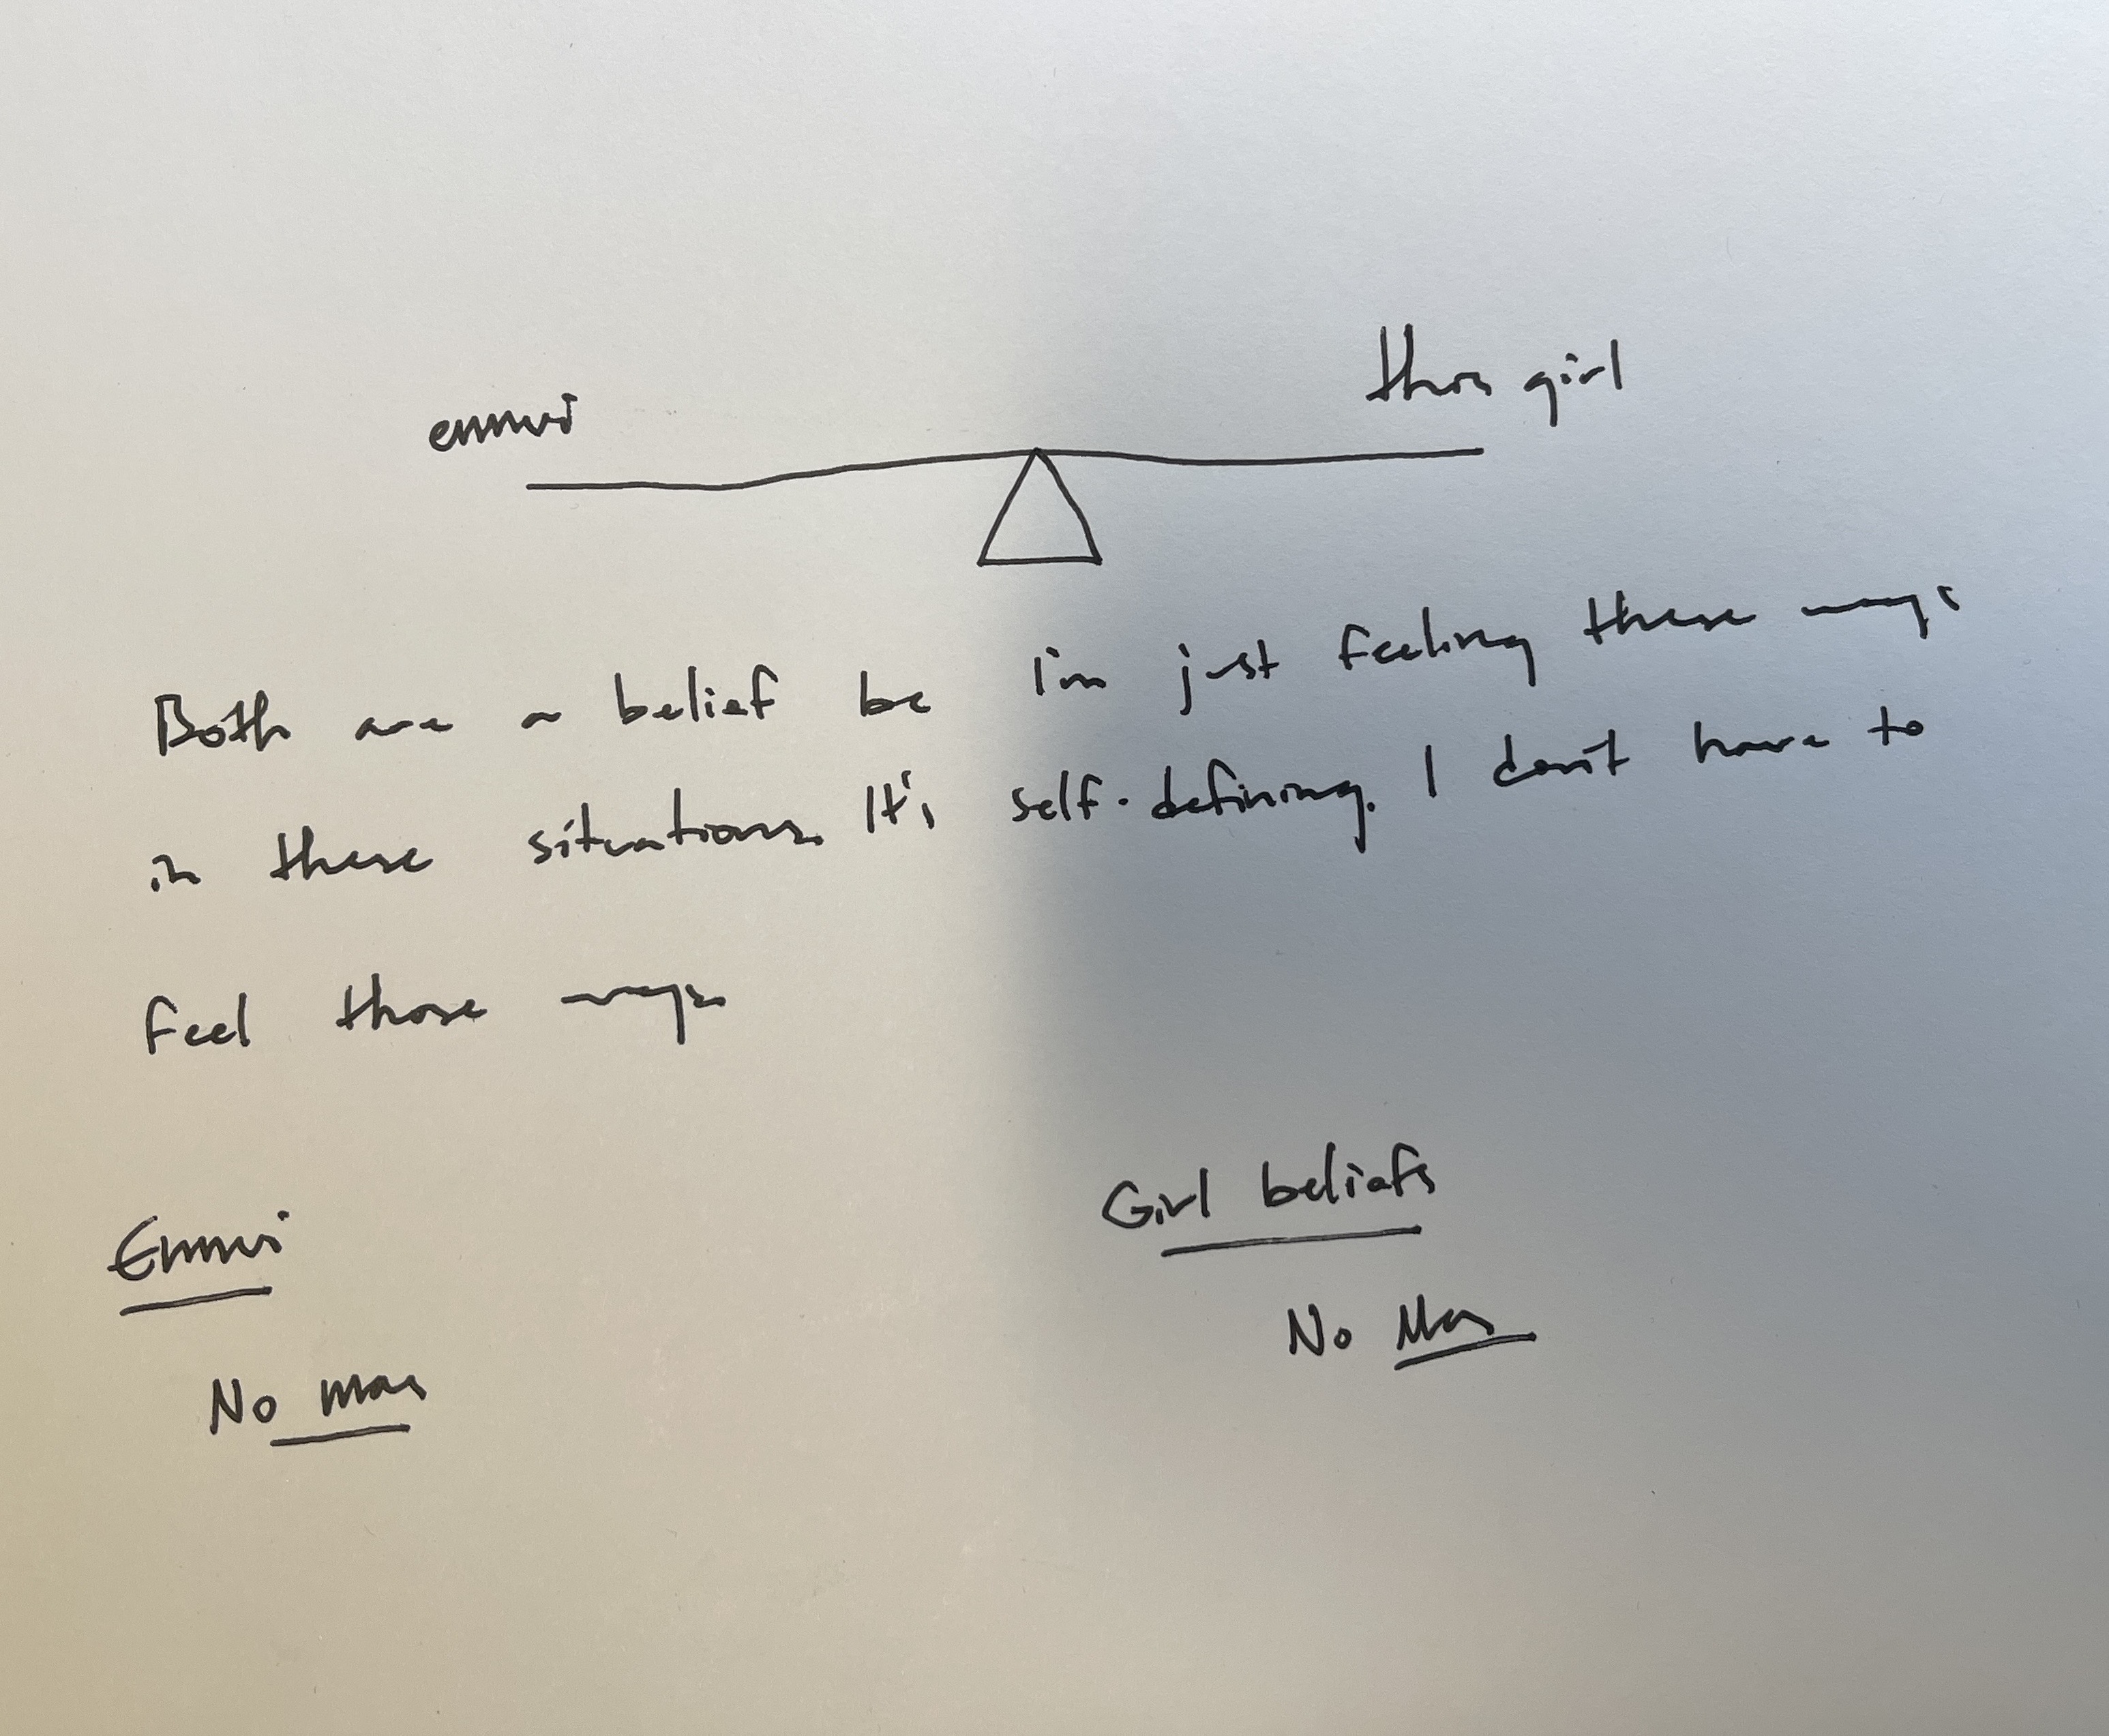 ennui
this girl
Both are a belief bc I'm just feeling these ways
in these situations. It's self-defining. I don't have to
feel those ways.
Ennui
Girl beliefs
No mas
No Mas